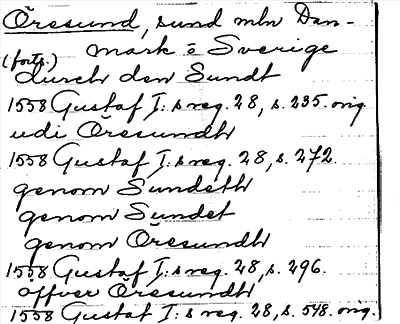 Öresund, sund mln Dan-
mark o Sverige
(forts.)
durch den Sundt
1558 Gustaf I:s reg. 28, s. 235. orig
udi Öresundh
1558 Gustaf I:s reg. 28, s. 272.
genom Sundeth
genom Sundet
genom Öresundh
1558 Gustaf I:s reg. 28, s. 296.
öffver Öresundh
1558 Gustaf I:s reg. 28, s. 548. orig.